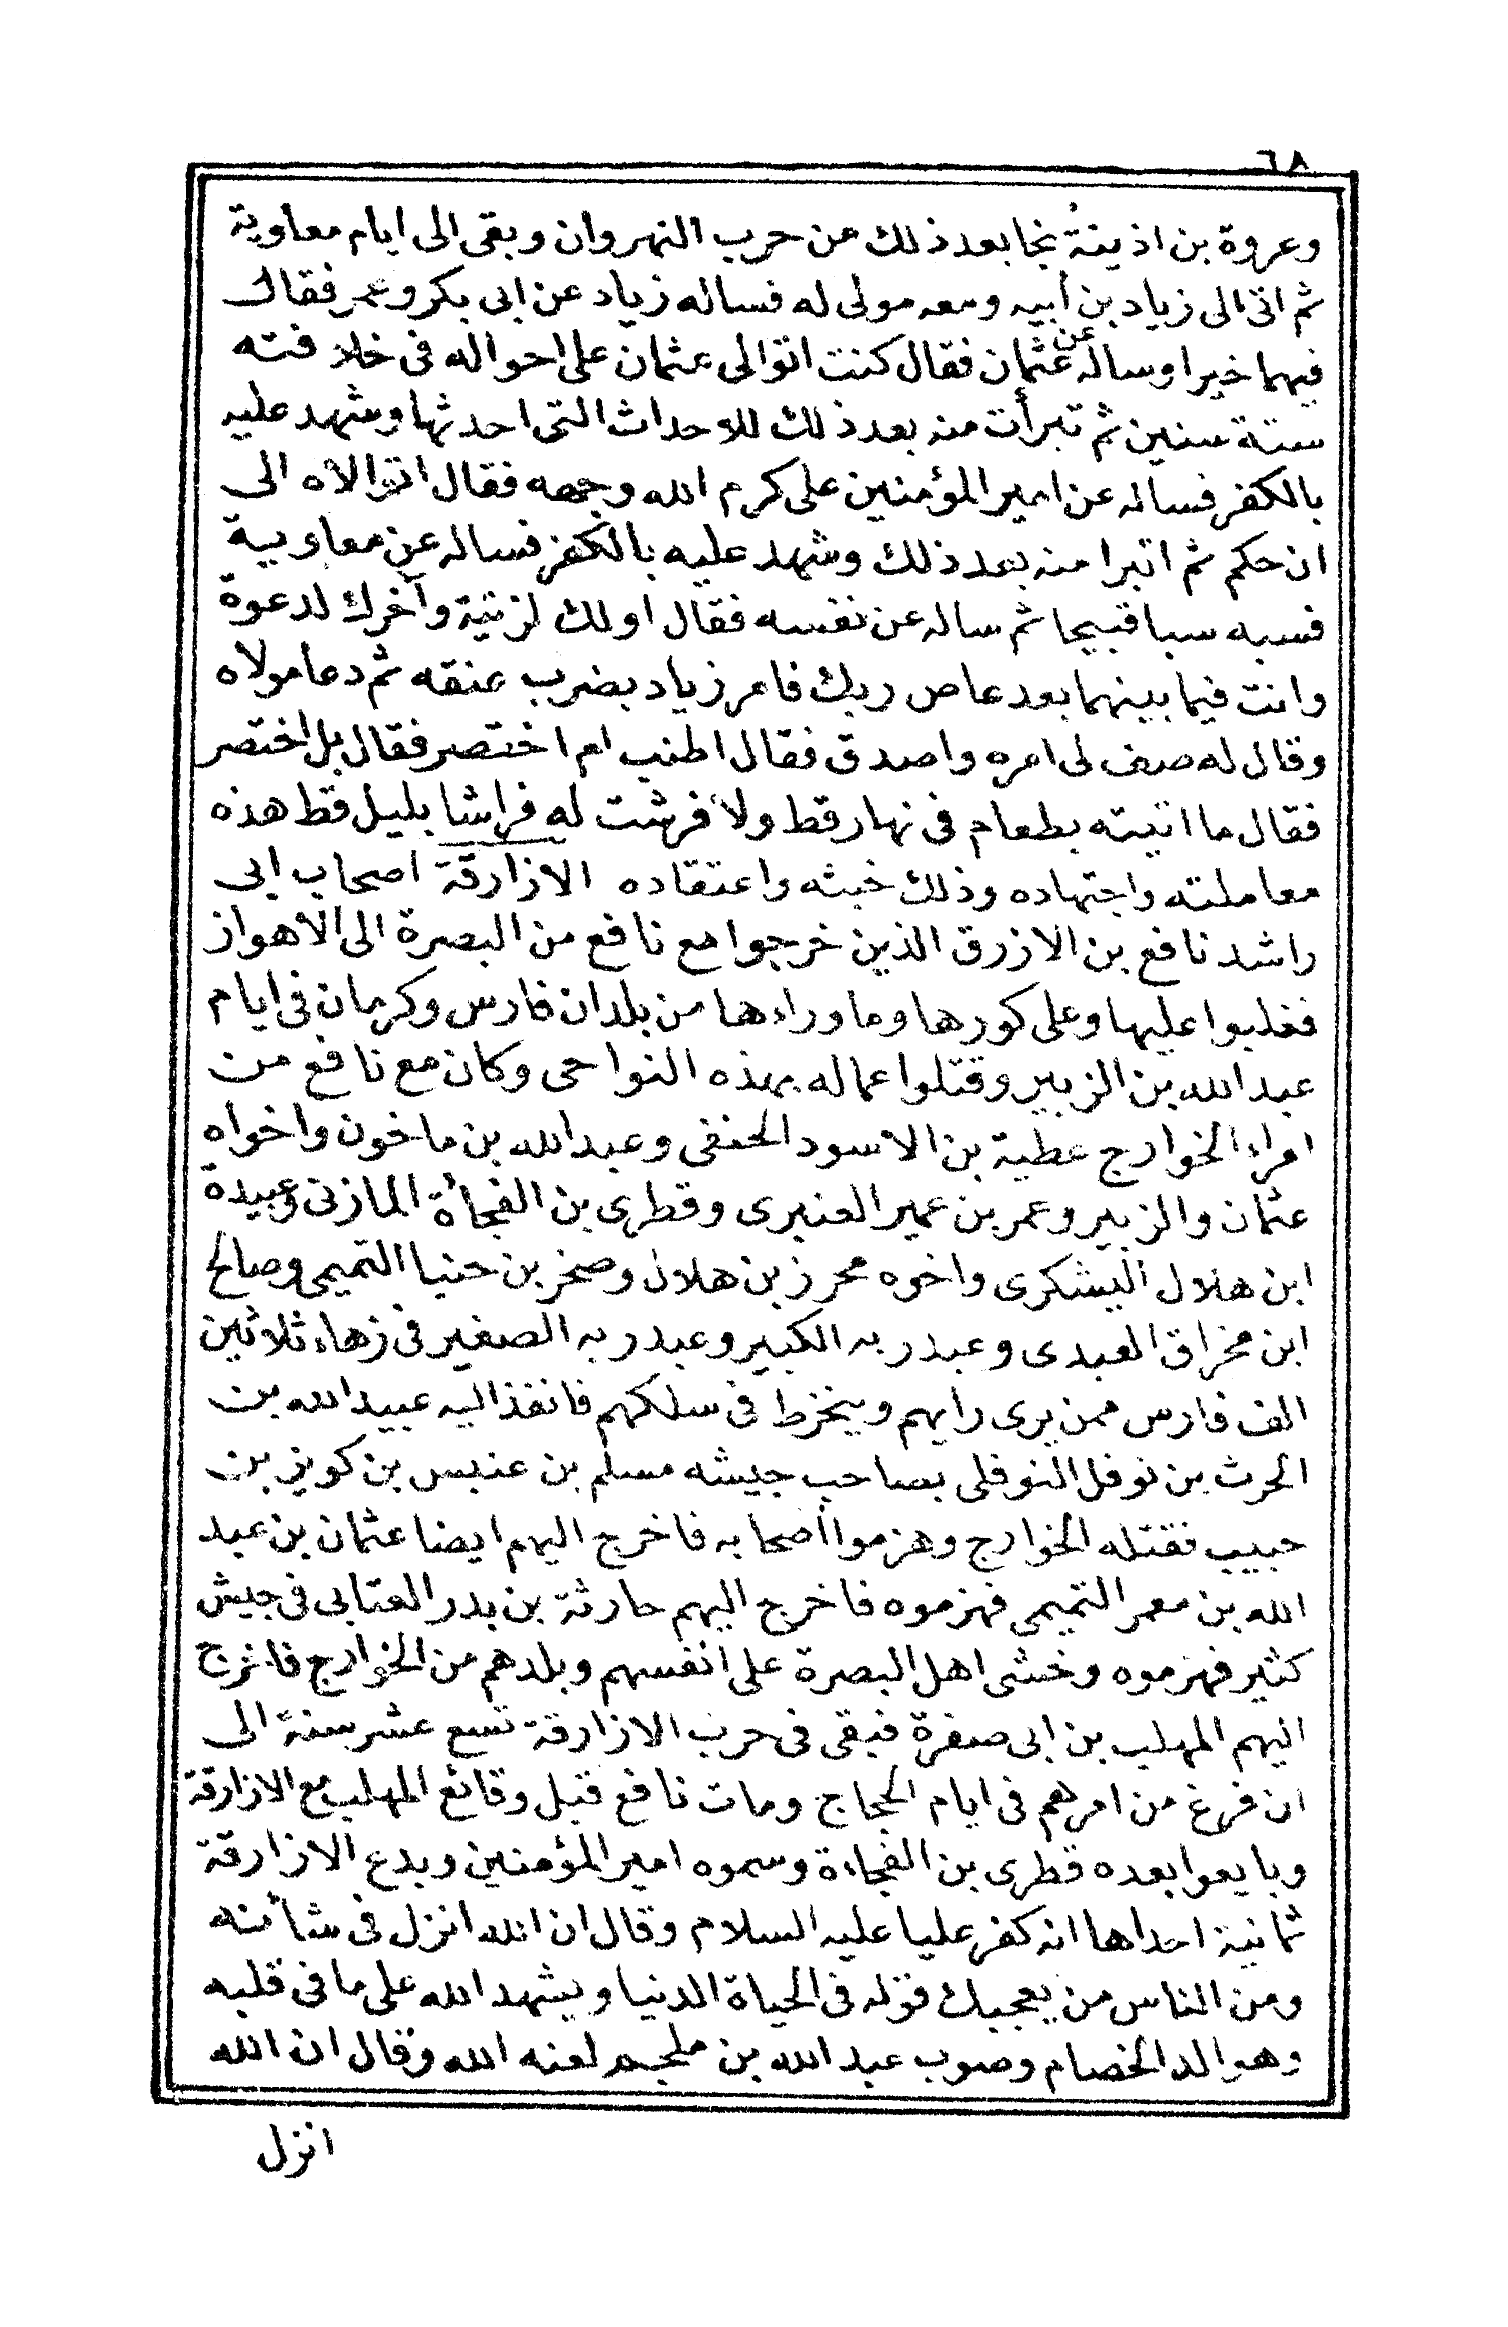 ٦٨
وعروة بن اذينة نجا بعد ذلك من حرب النهروان وبقى الى ايام معاوية
ثم اتى الى زياد بن أبيه ومعه مولى له فساله زياد عن ابى بكر وعمر فقال
فيهما خيرا وساله عن عثمان فقال كنت اتوالى عثمان على احواله فى خلافته
ستة سنين ثم تبرأت منه بعد ذلك للاحداث التى احدثها وشهد عليه
بالكفر فساله عن امير المؤمنين على كرم الله وجهه فقال اتوالاه الى
ان حكم ثم اتبرا منه بعد ذلك وشهد عليه بالكفر فساله عن معاوية
فسبه سبا قبيحا ثم ساله عن نفسه فقال اولك لزنية وآخرك لدعوة
وانت فيما بينهما بعد عاص ربك فامر زياد بضرب عنقه ثم دعا مولاه
وقال له صف لى امره واصدق فقال اطنب ام اختصر فقال بل اختصر
فقال ما اتيته بطعام فى نهار قط ولا فرشت له فراشا بليل قط هذه
معاملته واجتهاده وذلك خبثه واعتقاده الازارقة اصحاب ابى
راشد نافع بن الازرق الذين خرجوا مع نافع من البصرة الى الاهواز
فغلبوا عليها وعلى كورها وما وراءها من بلدان فارس وكرمان فى ايام
عبد الله بن الزبير وقتلوا عماله بهذه النواحى وكان مع نافع من
امراء الخوارج عطية بن الاسود الحنفى وعبد الله بن ماخون واخواه
عثمان والزبير وعمر بن عمير العنبرى وقطرى بن الفجأة المازنى وعبيدة
ابن هلال اليشكرى واخوه محرز بن هلال وصخر بن حنبا التميمى وصالح
ابن مخراق العبدى وعبد ربه الكبير وعبد ربه الصغير فى زهاء ثلاثين
الف فارس ممن يرى رايهم وينخرط فى سلكهم فانفذ اليه عبيد الله بن
الحرث بن نوفل النوفلى بصاحب جيشه مسلم بن عنبس بن كويز بن
حبيب فقتله الخوارج وهزموا أصحابه فاخرج اليهم ايضا عثمان بن عبد
الله بن معمر التميمى فهزموه فاخرج اليهم حارثة بن بدر العتابى فى جيش
كثير فهزموه وخشى اهل البصرة على انفسهم وبلدهم من الخوارج فاخرج
اليهم المهلب بن ابى صفرة فبقى فى حرب الازارقة تسع عشر سنة الى
ان فرغ من امرهم فى ايام الحجاج ومات نافع قبل وقائع المهلب مع الازارقة
وبايعوا بعده قطرى بن الفجاءة وسموه امير المؤمنين وبدع الازارقة
ثمانية احداها انه كفر عليا عليه السلام وقال ان الله انزل فى شأنه
ومن الناس من يعجبك قوله فى الحياة الدنيا ويشهد الله على ما فى قلبه
وهو الد الخصام وصوب عبد الله بن ملجم لعنه الله وقال ان الله
انزل